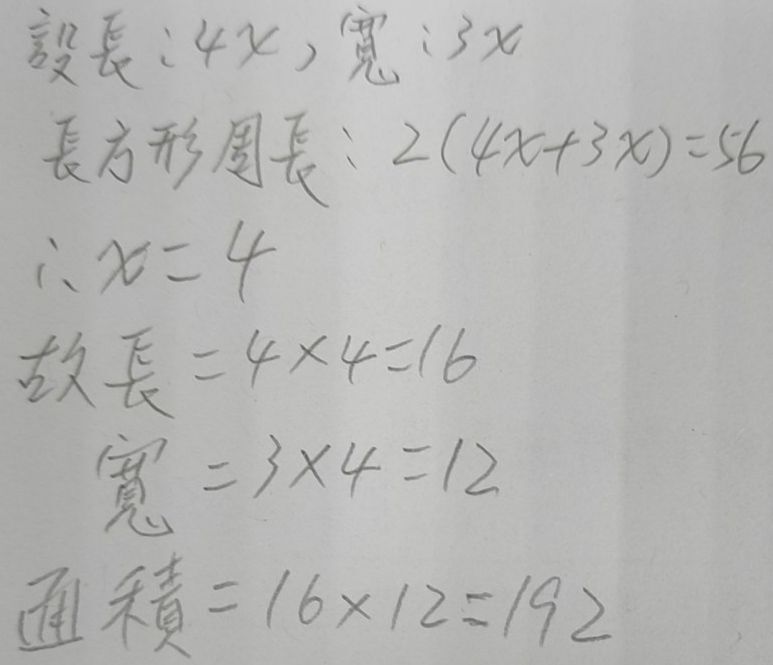 設長:4x,寬:3x
長方形周長:2(4x+3x)=56
∴x=4
故長=4×4=16
寬=3×4=12
面積=16×12=192